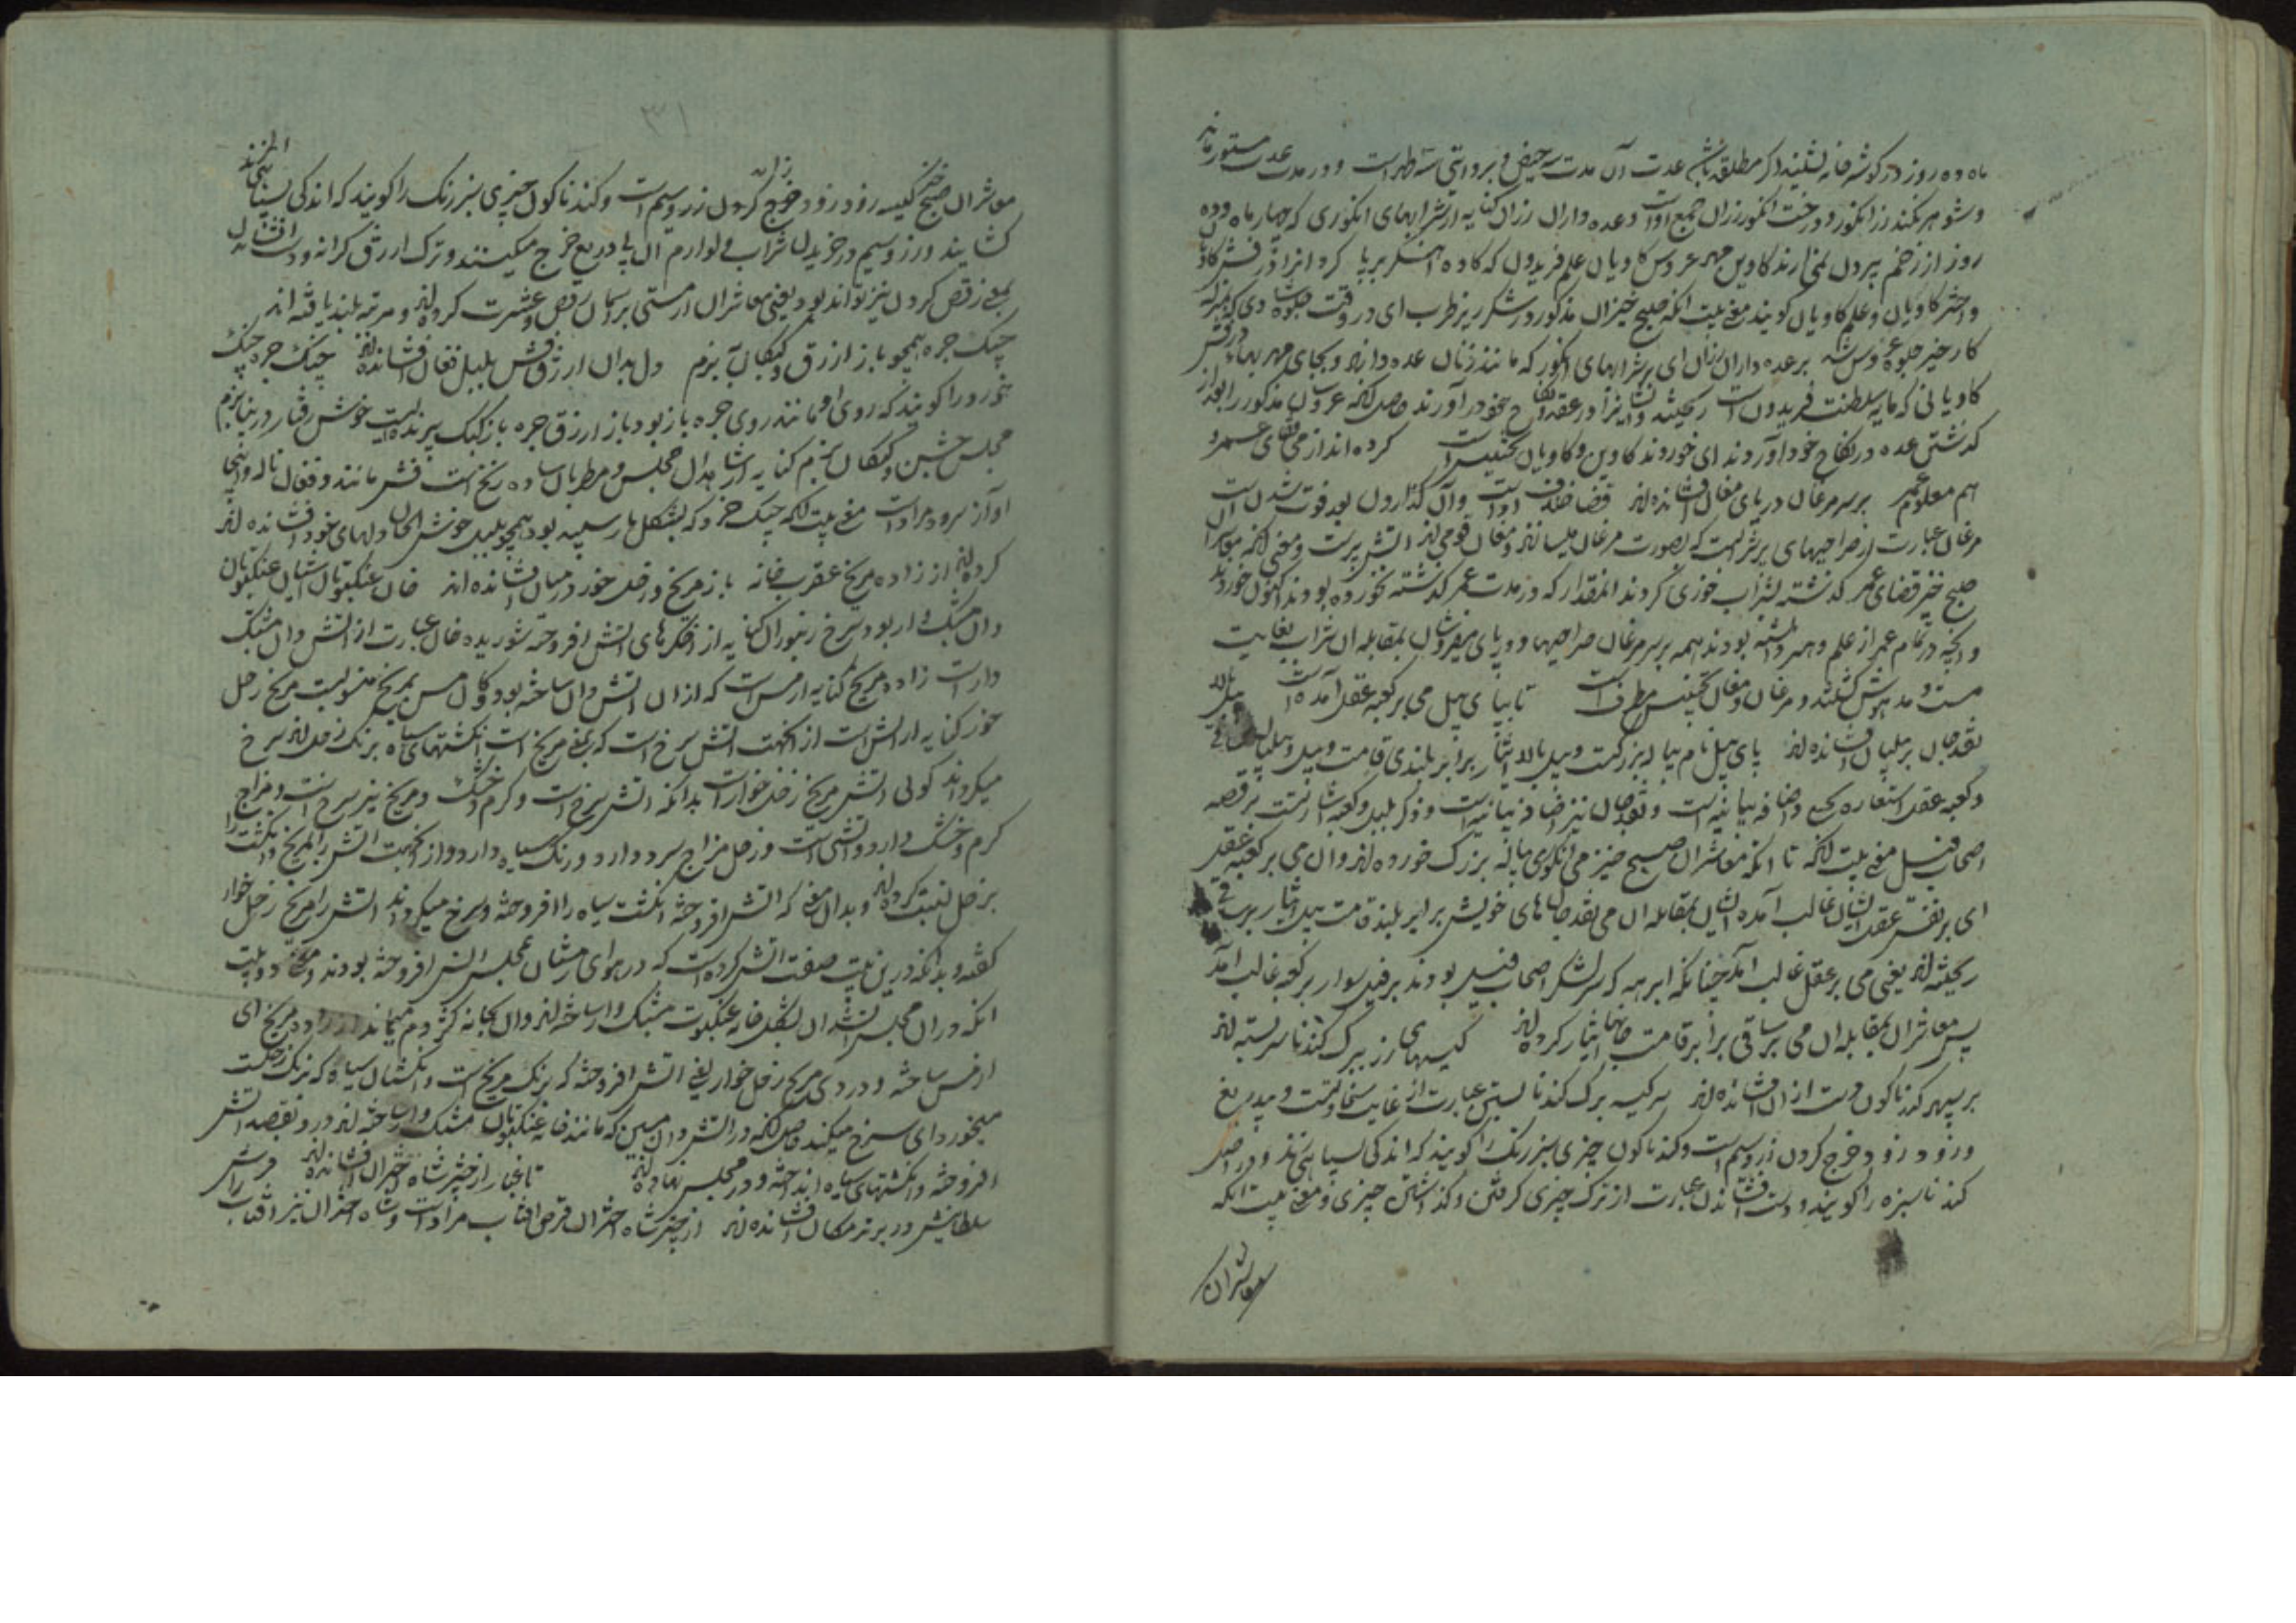 ماه و ده روز در گوشه خانه نشیند و اگر مطلقه باشد عدت آن مدت سه حیض و بروایتی سه طهر است و در مدت عدت مستور ماند
و شوهر نکند رز انگور و درخت انگور رزان جمع اوست و عده داران رزان کنایه از شرابهای انگوری که چهار ماه و ده
روز از زخم بیرون نمی ارند کاوین مهر عروس کاویان علم فریدون که کاوه اهنگر برپا کرد و انرا درفش کاو
و اختر کاویان و علم کاویان گویند معنی بیت انکه صبح خیزان مذکور در شکر ریز طرب ای در وقت جلوه
کار خیر جلوه عروس بر عده داران رزان ای بر شرابهای انگور که مانند زنان عده دارند و بجای مهر بها درفش
کاویانی که مایه سلطنت فریدون است ریخته و در عقد و نکاح خود در آورند حاصل انکه عروسان مذکور را بعد از
گذشتن عده در نکاح خود آوردند ای خوردند کاوین و کاویان تجنیس است کرده اند از می قضای عمر و
هم معلوم عمر بر سر مرغان در پای مغان افشانده اند قضا خلاف اداست و آن گذاردن بعد فوت شدن است
مرغان عبارت از صراحیهای پر شراب است که بصورت مرغان میسازند و مغان قومی اند اتش پرست و معنی انکه معاشران
صبح خیز قضای عمر گذشته شراب خوری کردند انمقدار که در مدت عمر گذشته نخورده بودند اکنون خوردند
و انچه در تمام عمر از علم و هنر داشته بودند همه بر سر مرغان صراحیها و در پای میفروشان بمقابله ان شراب بغایت
مست و مدهوش گشتند و مرغان و مغان تجنیس مطرف است تا بپای پیل می بر کعبه عقل آمده است پیل بالا
نقد جان بر پیلبان افشانده اند پای پیل نام پیاله بزرگست و پیل بالا انثار برابر بلندی قامت پیل و پیلبان ساقی
و کعبه عقل استعاره صحیح و اضافه بیانیه است و نقد جان نیز اضافه بیانیه است و ذکر پیل و کعبه اشارتست بر قصه
اصحاب فیل معنی بیت انکه تا انکه معاشران صبح خیز می انگوری پیاله بزرگ خورده اند و ان می بر کعبه عقل
ای بر نفس عقل ایشان غالب آمده ایشان بمقابله ان می نقد جانهای خویش برابر بلند قامت پیل انثار بر ساقی
ریخته اند یعنی می بر عقل غالب آمد چنانکه ابرهه که سر لشکر اصحاب فیل بودند بر فیل سوار بر کعبه غالب آمد
پس معاشران بمقابله ان می بر ساقی برابر قامت جانها ایثار کرده اند کیسهای زر ببرگ کندنا سر بسته اند
بر سپهر کندناگون دست ازان افشانده اند سر کیسه ببرگ کندنا بستن عبارت از غایت سخاوتست و بیدریغ
و زود زود خرج کردن زر و سیم است و کندناگون چیزی سبز رنگ را گویند که اندکی بسیاهی زند و در اصل
کندنا سبزه را گویند و دست افشاندن عبارت از ترک چیزی گرفتن و گذاشتن چیزی و معنی بیت انکه
معاشران
۳۱
معاشران صبح خیز کیسه زود زود خرج کردن زر و سیم است و کندناگون چیزی سبز رنگ را گویند که اندکی بسیاهی زند
گشایند و زر و سیم در خریدن شراب و لوازم ان بی دریغ خرج میکنند و ترک ازرق گرانه و دست افشانی
بمعنی رقص کردن نیز تواند بود یعنی معاشران از مستی بر آسمان رقص و عشرت کرده اند و مرتبه بلند یافته اند
چنگ جره همچو باز ازرق و کبکان بزم دل بدان ازرق وش بلبل فغان افشانده اند چنگ جره چنگ
خورد را گویند که روی او مانند روی جره باز بود باز ازرق جره باز کبک پرنده ایست خوش رفتار در بنا بزم
مجلس جشن و کبکان بزم کنایه از شاهدان مجلس و مطربان ساده زنخ است وش مانند و فغان ناله و اینجا
اواز سرود مراد است معنی بیت انکه چنگ خرد که بشکل باز سپید بود همچو بلبل خوش الحان دلهای خود افشانده اند
کرده اند از زاده مریخ عقرب خانه باز مریخ زحل خور در میان افشانده اند خان عنکبوتان شان عنکبوتان
و ان مشبک دار بود سرخ زنبوران کنایه از اخگرهای اتش افروخته شوریده خان عبارت از اتش دان مشبک
دار است زاده مریخ کنایه از مس است که ازان اتش دان ساخته بود و کان مس بمریخ منسوبست مریخ زحل
خور کنایه از اتش است ازانجهت اتش سرخ است که بمعنی مریخ است انگشتهای سیاه برنگ زحل اند سرخ
میگرداند گوئی اتش مریخ زحل خوار است بدانکه اتش سرخ است و گرم و خشک و مریخ نیز سرخ است و مزاج
گرم و خشک دارد و اتشی است و زحل مزاج سرد دارد و رنگ سیاه دارد و ازانجهت اتش را بمریخ و انگشت را
بزحل نسبت کرده اند و بدان معنی که اتش افروخته انگشت سیاه را افروخته و سرخ میگرداند اتش را مریخ زحل خوار
گفته و بدانکه درین بیت صفت اتش کرده است که در هوای زمستان بمجلس اتش افروخته بودند و معنی دو بیت
انکه دران مجلس اتش دان بشکل خانه عنکبوت مشبک وار ساخته اند و ان بخانه کژدم میماند از زاده مریخ ای
از مس ساخته و در وی مریخ زحل خوار یعنی اتش افروخته که برنگ مریخ است و انگشتان سیاه که برنگ زحلست
میخورد ای سرخ میکند حاصل انکه در اتش دان مسین که مانند خانه عنکبوتان مشبک وار ساخته اند در و نقصد اتش
افروخته و انگشتهای سیاه انداخته و در مجلس نهاده اند تا غبار از چتر شاه اختران افشانده اند فرش
سلطانیش در برتر مکان افشانده اند از چتر شاه اختران قرص افتاب مراد است و شاه اختران نیز افتاب راست